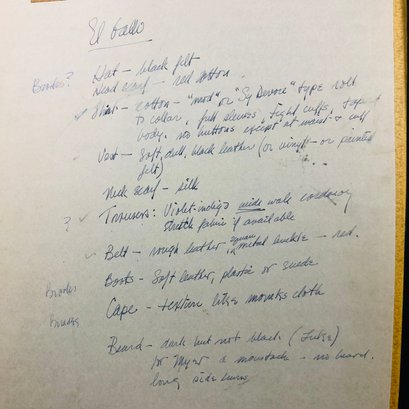 El Gallo
Brooks? Hat - black felt
Head scarf - red cotton.
Shirt - cotton - "mod" or "Sy Devore" type roll
to collar, full sleeves, tight cuffs, taped
body. no buttons except at waist & cuff
Vest - Soft, dull, black leather (or vinyl - or painted
felt)
Neck scarf - silk
? Trousers: Violet-indigo wide wale corduroy
stretch fabric if available
Belt - rough leather square metal buckle - red.
Brooks Boots - Soft leather, plastic or suede
Brooks Cape - texture like monks cloth
Beard - dark but not black
for Myer a moustache - no beard.
long side burns